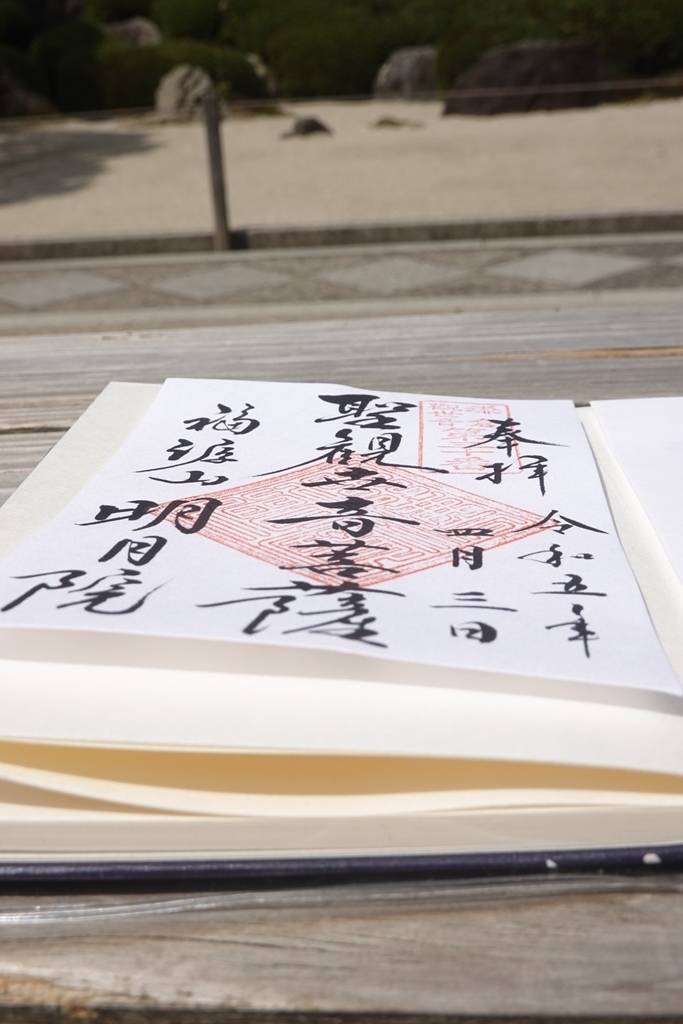 奉拝
令和五年
四月三日
聖観世音菩薩
福源山
明月院